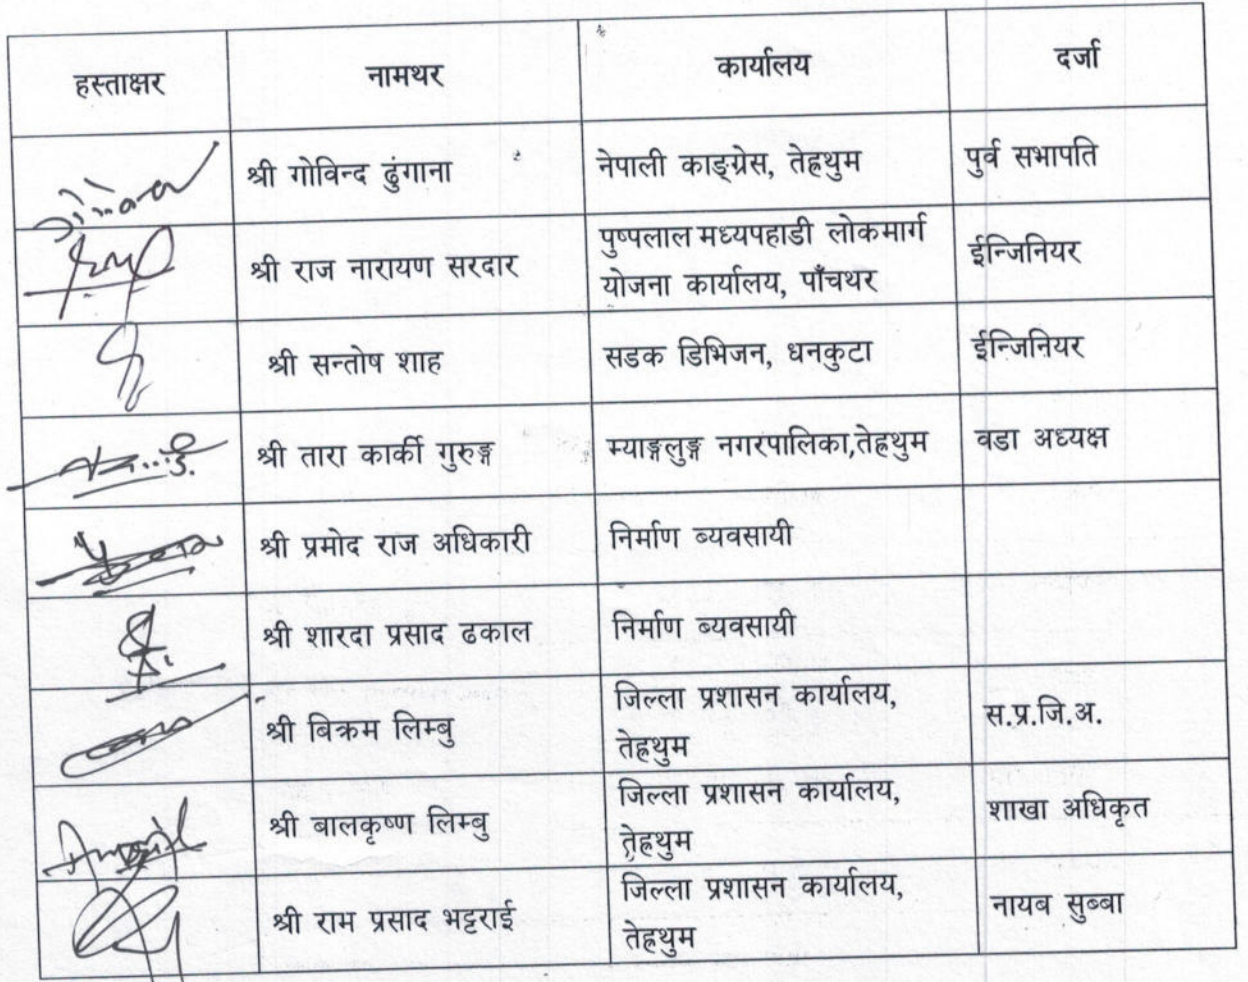 हस्ताक्षर नामथर कार्यालय दर्जा
श्री गोविन्द ढुंगाना नेपाली काङ्ग्रेस, तेह्रथुम पुर्व सभापति
श्री राज नारायण सरदार पुष्पलाल मध्यपहाडी लोकमार्ग
योजना कार्यालय, पाँचथर ईन्जिनियर
श्री सन्तोष शाह सडक डिभिजन, धनकुटा ईन्जिनियर
श्री तारा कार्की गुरुङ्ग म्याङ्गलुङ्ग नगरपालिका,तेह्रथुम वडा अध्यक्ष
श्री प्रमोद राज अधिकारी निर्माण ब्यवसायी
श्री शारदा प्रसाद ढकाल निर्माण ब्यवसायी
श्री बिक्रम लिम्बु जिल्ला प्रशासन कार्यालय,
तेह्रथुम स.प्र.जि.अ.
श्री बालकृष्ण लिम्बु जिल्ला प्रशासन कार्यालय,
तेह्रथुम शाखा अधिकृत
श्री राम प्रसाद भट्टराई जिल्ला प्रशासन कार्यालय,
तेह्रथुम नायब सुब्बा